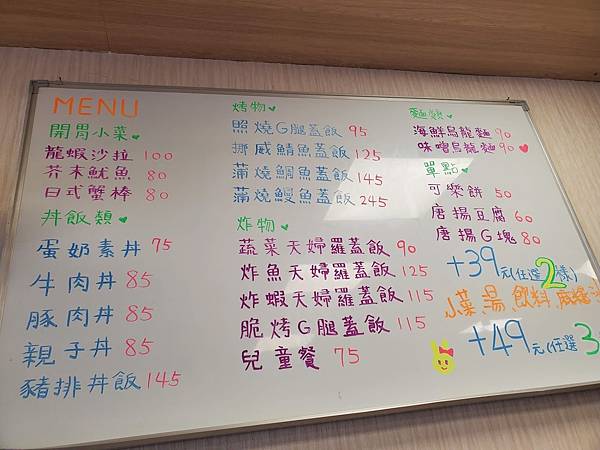 MENU
開胃小菜
龍蝦沙拉 100
芥末魷魚 80
日式蟹棒 80
丼飯類
蛋奶素丼 75
牛肉丼 85
豚肉丼 85
親子丼 85
豬排丼飯 145
烤物
照燒G腿蓋飯 95
挪威鯖魚蓋飯 125
蒲燒鯛魚蓋飯 145
蒲燒鰻魚蓋飯 245
炸物
蔬菜天婦羅蓋飯 90
炸魚天婦羅蓋飯 125
炸蝦天婦羅蓋飯 115
脆烤G腿蓋飯 115
兒童餐 75
麵類
海鮮烏龍麵 90
味噌烏龍麵 90
單點
可樂餅 50
唐揚豆腐 60
唐揚G塊 80
+39元(任選2樣)
小菜、湯、飲料、
+49元(任選3